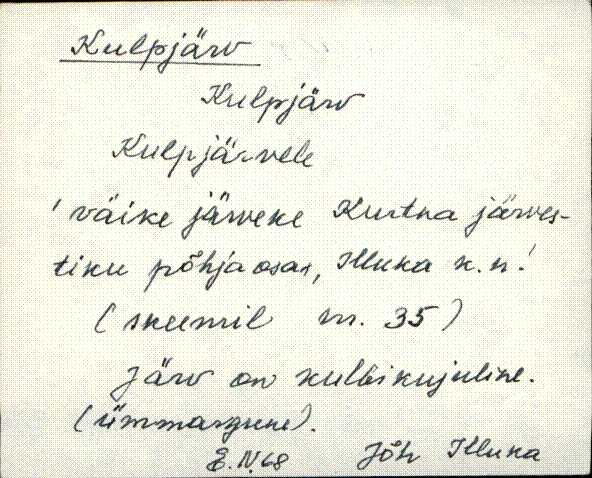 Kulpjärv
Kulpjärv
Kulpjärvele
'väike järveke Kurtna järves-
tiku põhjaosas, Illuka k.n.'
(skeemil nr. 35)
Järv on kulbikujuline.
(ümmargune).
E.N.68 Jõh Illuka